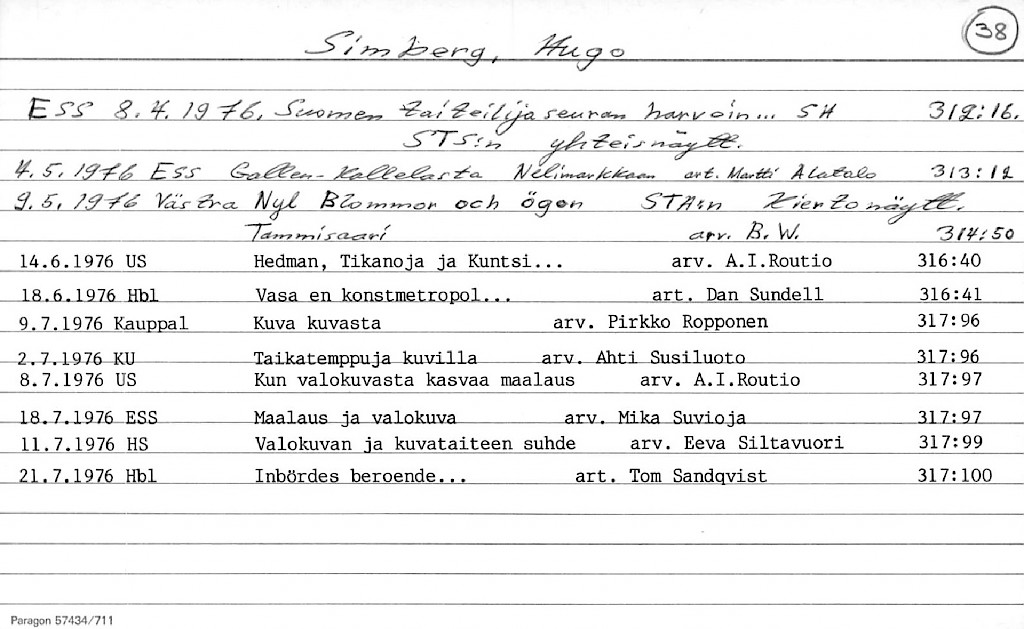 38
Simberg, Hugo
ESS 8.4.1976. Suomen taiteilijaseuran harvoin... SH 312:16.
STS:n yhteisnäytt.
4.5.1976 ESS Gallen-Kallelasta Nelimarkkaan art. Martti Alatalo 313:12
9.5.1976 Västra Nyl Blommor och ögon STA:n Kiertonäytt.
Tammisaari arv. B.W. 314:50
14.6.1976 US Hedman, Tikanoja ja Kuntsi... arv. A.I.Routio 316:40
18.6.1976 Hbl Vasa en konstmetropol... art. Dan Sundell 316:41
9.7.1976 Kauppal Kuva kuvasta arv. Pirkko Ropponen 317:96
2.7.1976 KU Taikatemppuja kuvilla arv. Ahti Susiluoto 317:96
8.7.1976 US Kun valokuvasta kasvaa maalaus arv. A.I.Routio 317:97
18.7.1976 ESS Maalaus ja valokuva arv. Mika Suvioja 317:97
11.7.1976 HS Valokuvan ja kuvataiteen suhde arv. Eeva Siltavuori 317:99
21.7.1976 Hbl Inbördes beroende... art. Tom Sandqvist 317:100
Paragon 57434/711